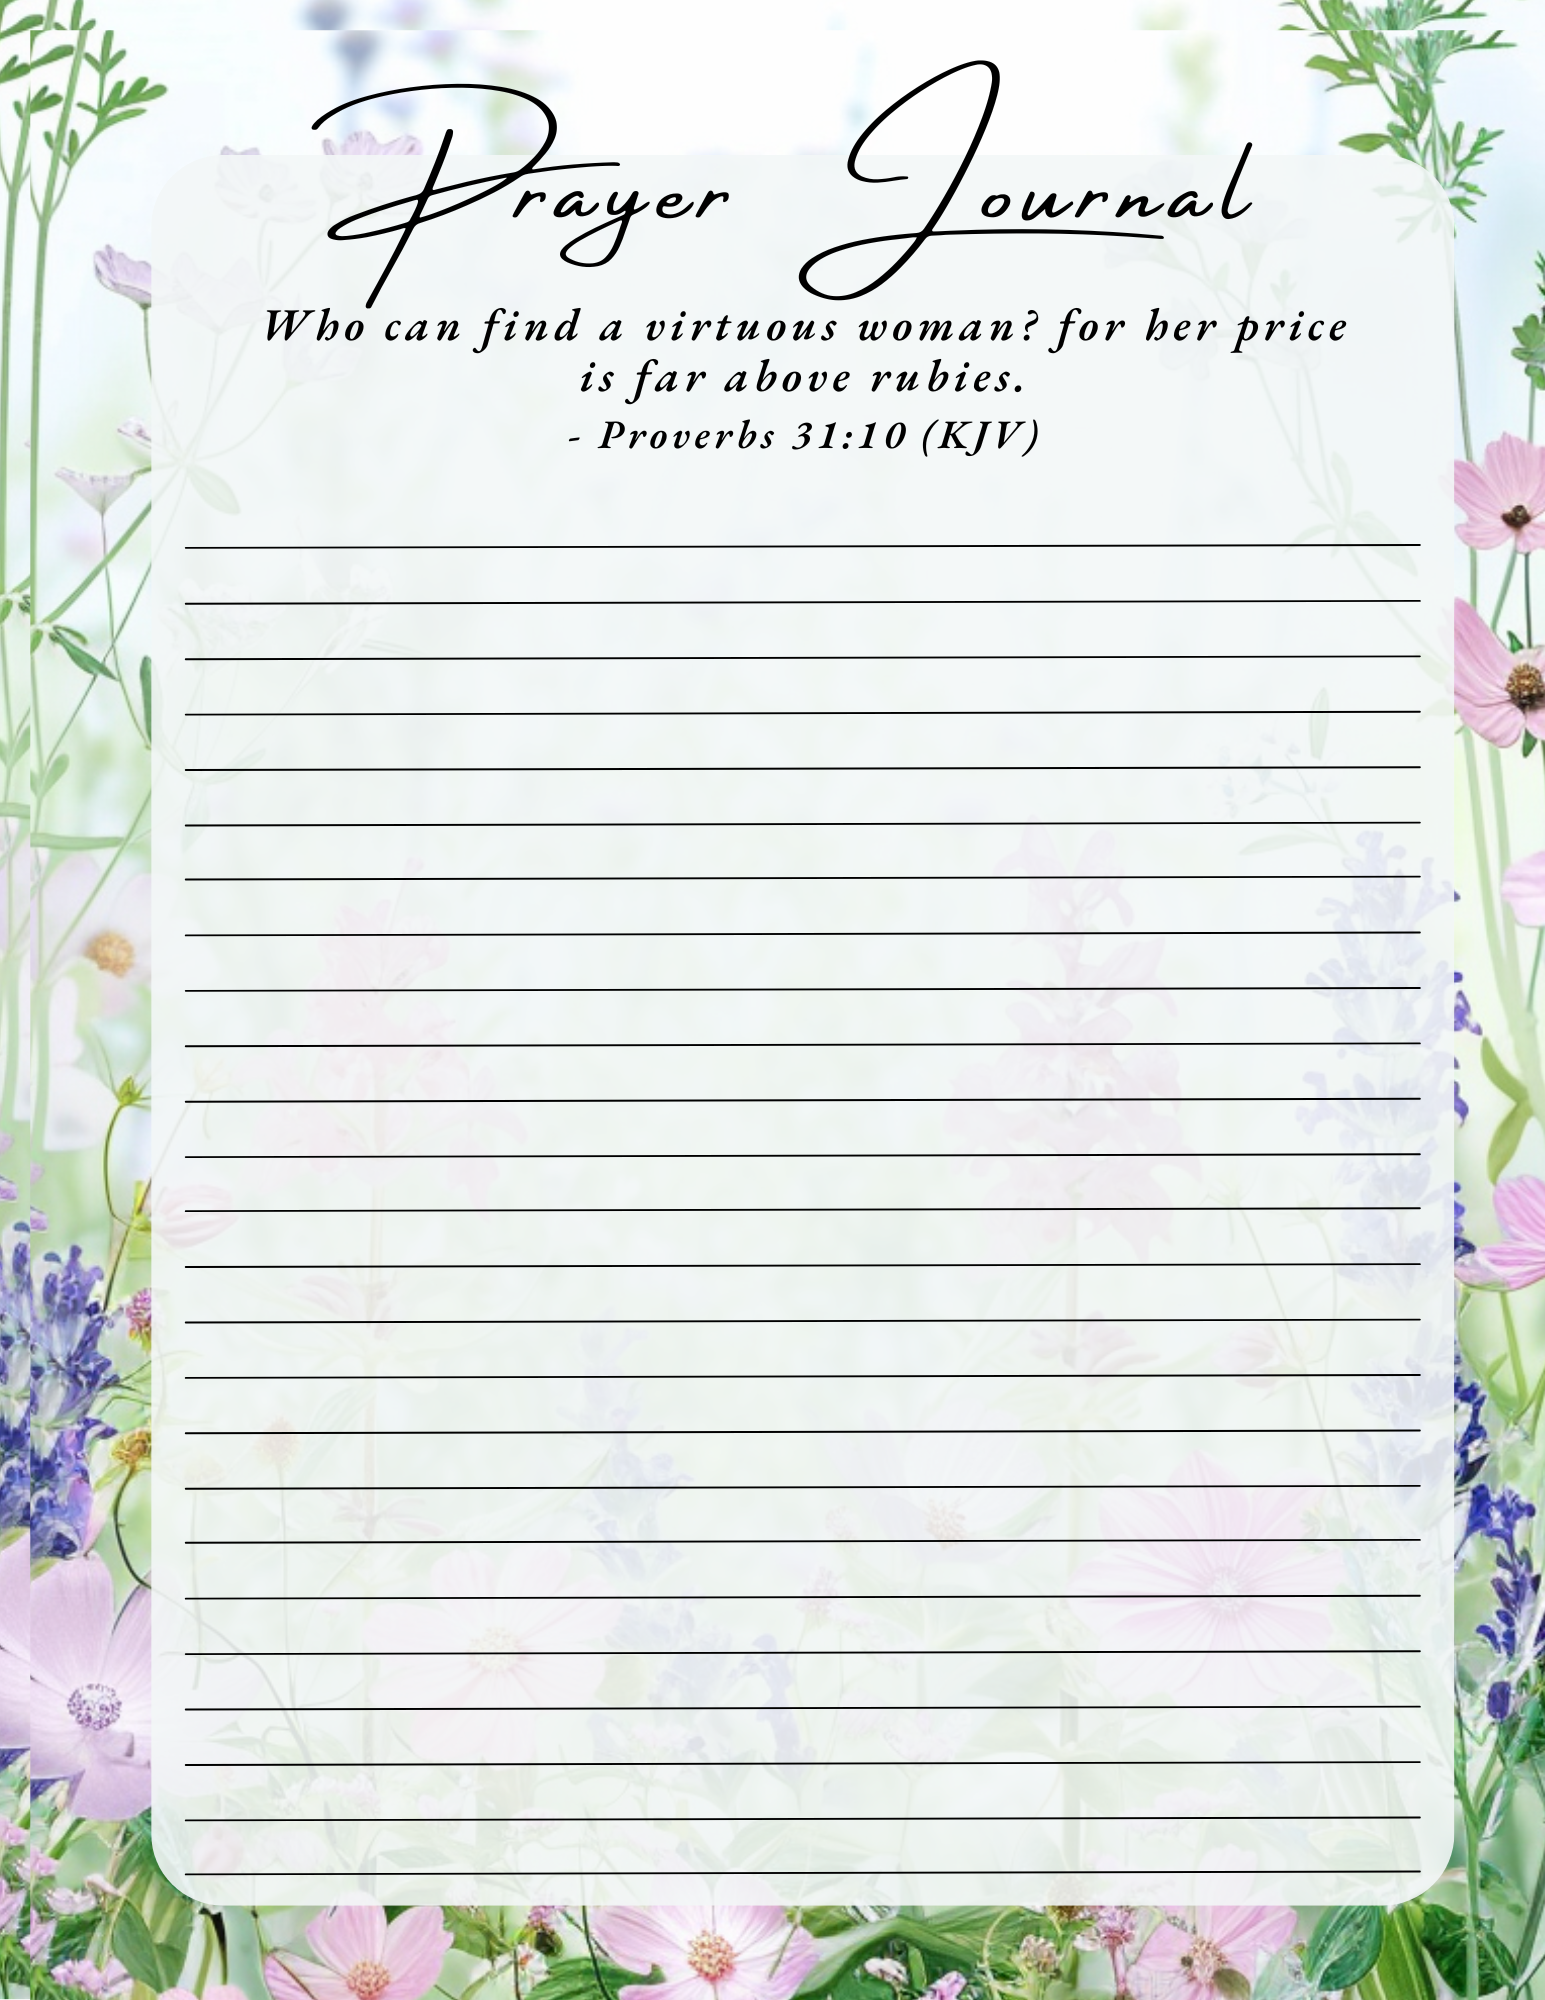 Prayer Journal
Who can find a virtuous woman? for her price
is far above rubies.
- Proverbs 31:10 (KJV)